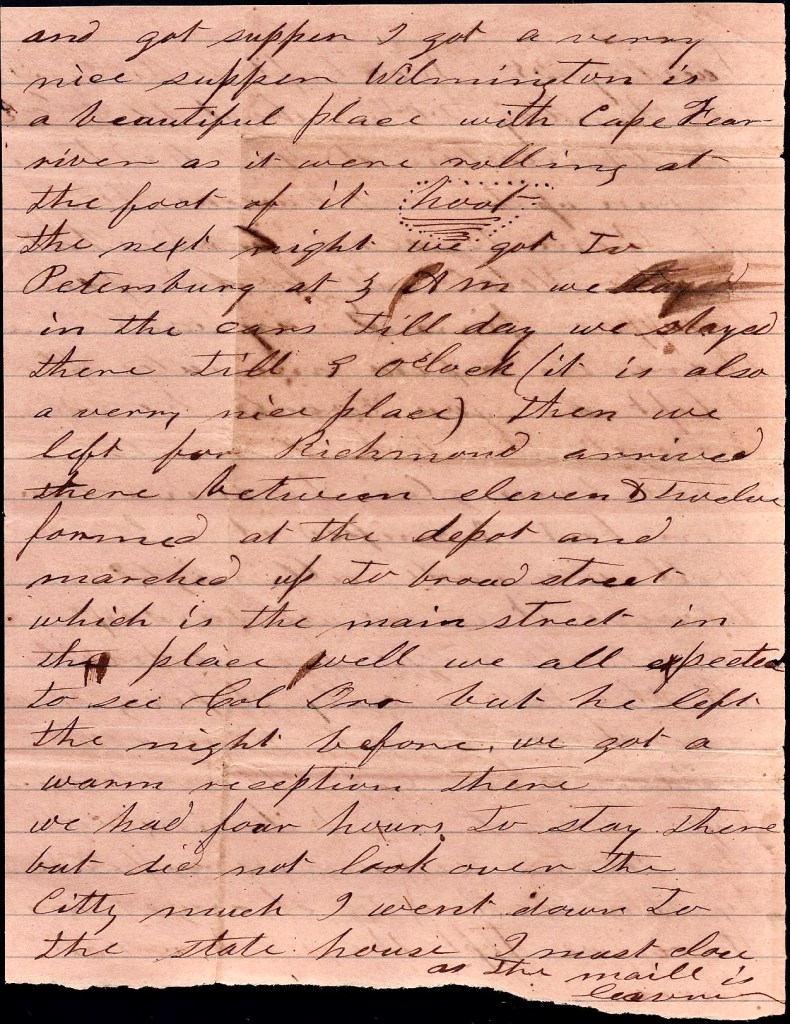 and got supper I got a verry
nice supper Wilmington is
a beautiful place with Cape Fear
river as it were rolling at
the foot of it hoot
the next night we got to
Petersburg at 3 A m we stayed
in the cars till day we stayed
there till 9 Oclock (it is also
a verry nice place) then we
left for Richmond arrived
there between eleven & twelve
formed at the depot and
marched up to broad street
which is the main street in
the place well we all expected
to see Col Orr but he left
the night before, we got a
warm reception there
we had four hours to stay there
but did not look over the
Citty much I went down to
the state house I must close
as the maill is